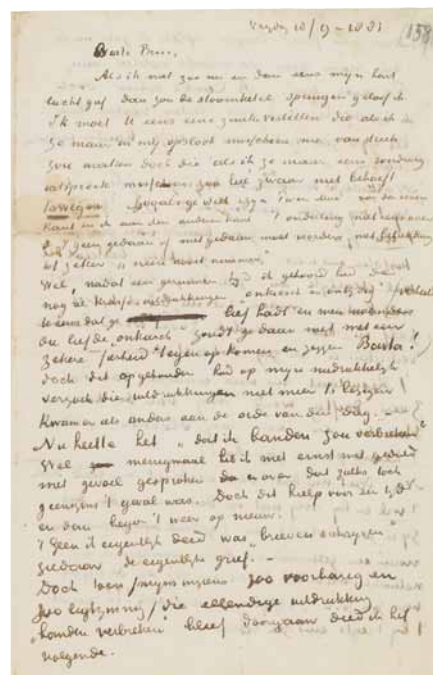 Vrijdag 18/9-1881 158
Beste Broer,
Als ik niet zoo nu en dan eens mijn hart
lucht gaf dan zou de stoomketel springen geloof ik.
Ik moet U eens eene zaak vertellen die als ik
ze maar in mij opsloot misschien me van streek
zou maken doch die als ik ze maar eens ronduit
uitspreek misschien zoo heel zwaar niet behoeft
te wegen. Ge weet er zijn van den eenen
kant en de aan den anderen kant
geen gedaan of niet gedaan moet worden, met
zeker „neen nooit nimmer”
Wel, nadat een geruimen tijd ik gehoord had
nog al uitdrukkingen „onkiesch en ontijdig”
eens dat ge lief hadt en men
uw liefde onkiesch zoudt ge daar niet met een
zekere fierheid tegen op komen en zeggen Basta!
doch dit opgehouden had op mijn nadrukkelijk
verzoek die uitdrukkingen niet meer te bezigen
kwam er iets anders aan de orde van den dag. –
Nu heette het „dat ik banden zou verbreken”
Wel menigmaal heb ik met ernst met geduld
met gevoel gesproken er over dat zulks toch
geenszins 't geval was. Doch dit hielp voor een tijd
en dan begon 't weer op nieuw.
't Geen ik eigenlijk deed was „brieven schrijven”
ziedaar de eigenlijke grief. –
Doch toen (mijns inziens zoo voorbarig en
zoo ligtzinnig) die ellendige uitdrukking
„banden verbreken” bleef doorgaan deed ik het
volgende.